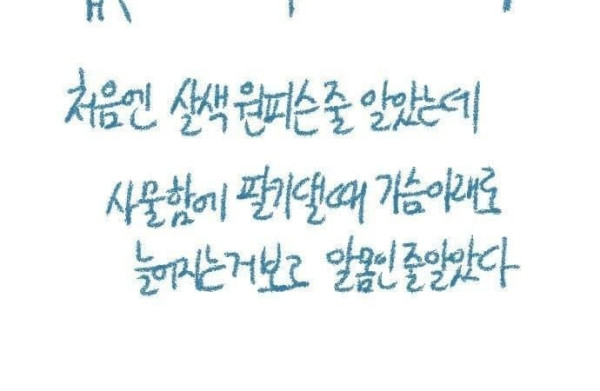 처음엔 살색 원피슨줄 알았는데
사물함에 팔기댈때 가슴아래로
늘어지는거보고 알몸인줄알았다